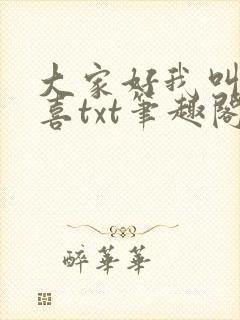 大家好我叫
喜txt笔趣阁
醉华华